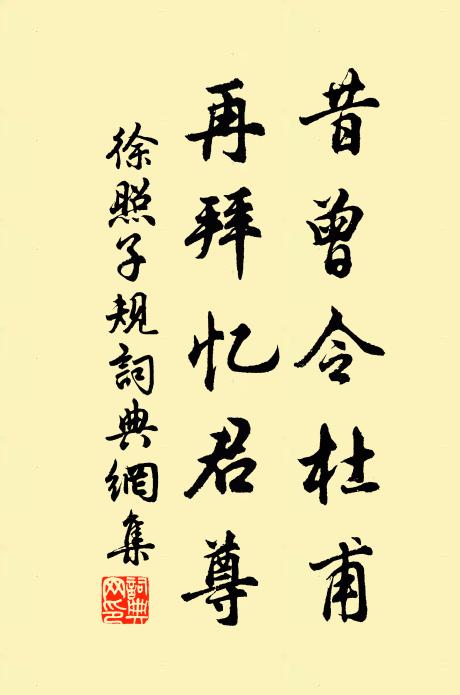 昔曾令杜甫
再拜忆君尊
徐照子规詞典網集
詞典网印